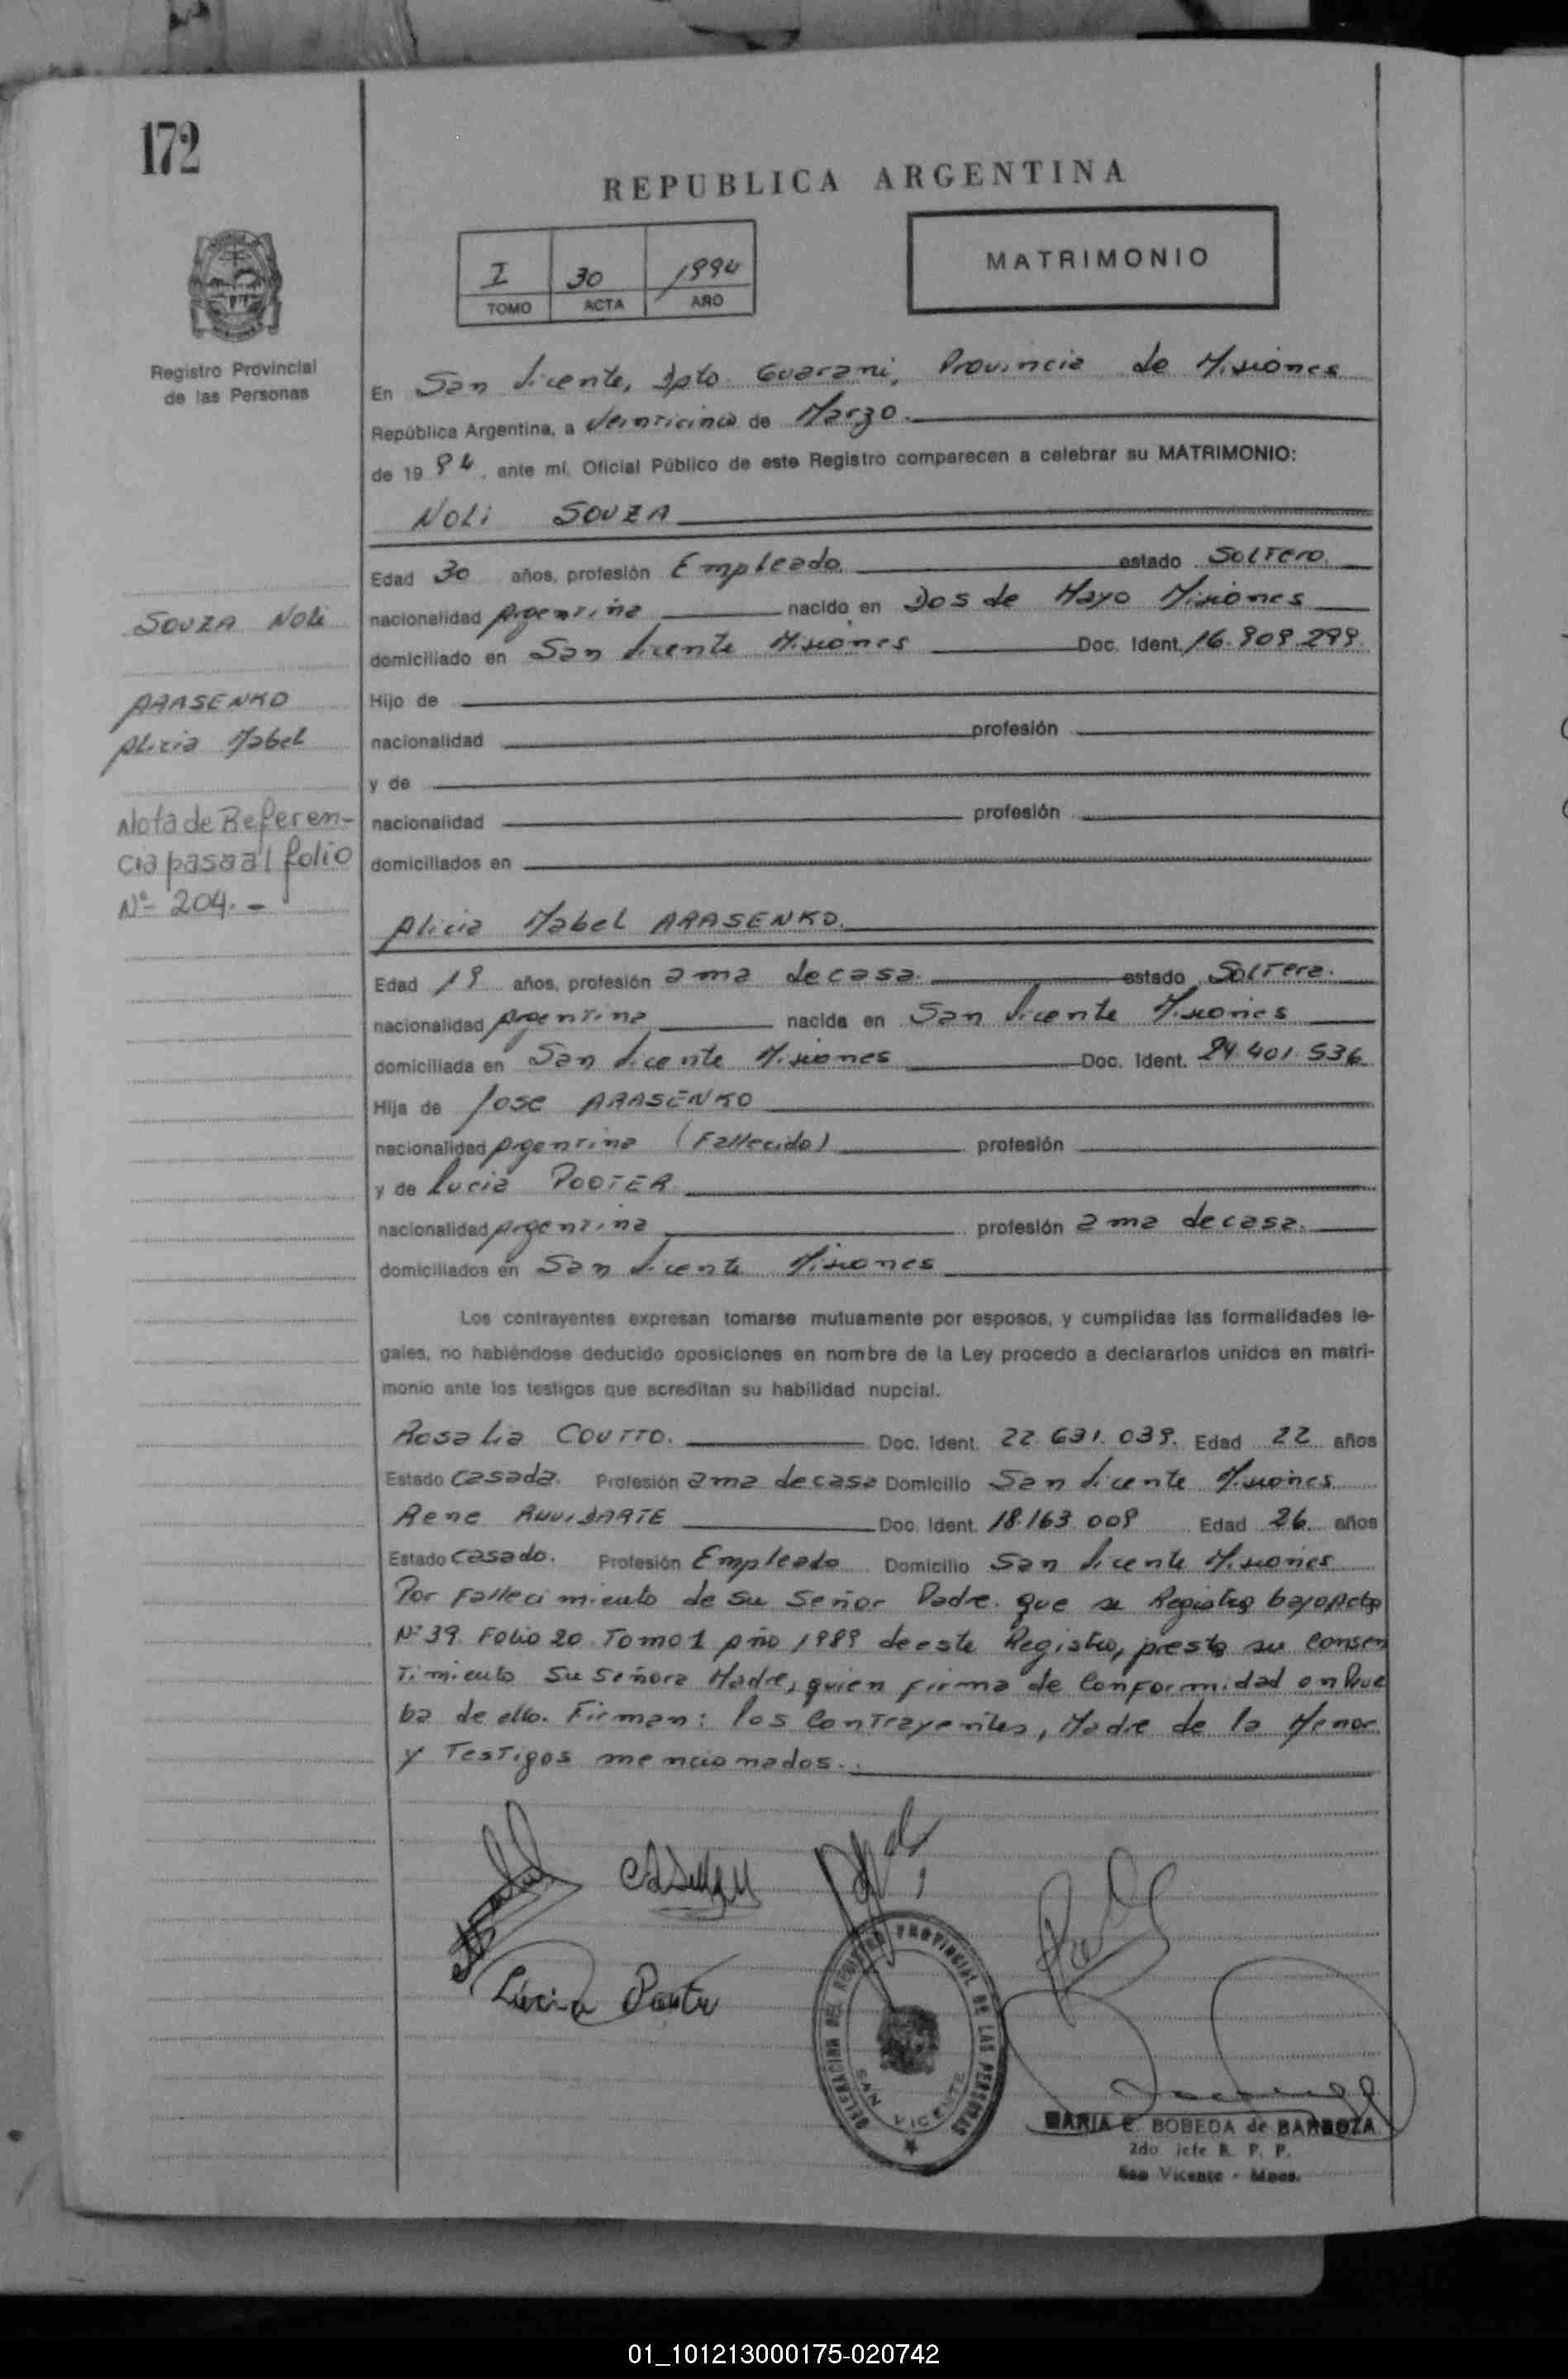 172
REPUBLICA ARGENTINA
I 30 1994
TOMO ACTA AÑO
MATRIMONIO
Registro Provincial
de las Personas
En San Vicente, Dpto. Guarani, Provincia de Misiones
República Argentina, a veinticinco de Marzo.
de 1994, ante mí, Oficial Público de este Registro comparecen a celebrar su MATRIMONIO:
NOLI SOUZA
Edad 30 años, profesión Empleado estado Soltero.
SOUZA Noli
nacionalidad Argentina nacido en Dos de Mayo Misiones
domiciliado en San Vicente Misiones Doc. Ident. 16.909.299.
ARASENKO
Alicia Mabel
Hijo de
nacionalidad profesión
y de
Nota de Referen-
cia pasa al folio
Nº 204.-
nacionalidad profesión
domiciliados en
Alicia Mabel ARASENKO.
Edad 19 años, profesión ama de casa. estado Soltera.
nacionalidad Argentina nacida en San Vicente Misiones
domiciliada en San Vicente Misiones Doc. Ident. 24.401.536
Hija de Jose ARASENKO
nacionalidad Argentina (Fallecido) profesión
y de Lucia POOTER
nacionalidad Argentina profesión ama de casa.
domiciliados en San Vicente Misiones
Los contrayentes expresan tomarse mutuamente por esposos, y cumplidas las formalidades le-
gales, no habiéndose deducido oposiciones en nombre de la Ley procedo a declararlos unidos en matri-
monio ante los testigos que acreditan su habilidad nupcial.
Rosalia COUTTO. Doc. Ident. 22.631.039. Edad 22 años
Estado Casada. Profesión ama de casa Domicilio San Vicente Misiones
Rene Doc. Ident. 18.163.009 Edad 26 años
Estado Casado. Profesión Empleado Domicilio San Vicente Misiones
Por Fallecimiento de su Señor Padre. que se Registro bajo Acta
Nº 39. Folio 20. Tomo 1 Año 1989 de este Registro, presta su Consen
Timiento Su Señora Madre, quien firma de Conformidad en Prue
ba de ello. Firman: los Contrayentes, Madre de la Menor
y Testigos mencionados.
Lucia
DELEGACION DEL REGISTRO PROVINCIAL DE LAS PERSONAS
SAN VICENTE
MARIA E. BOBEDA de BARBOZA
2do jefe R. P. P.
San Vicente - Mnes.
01_101213000175-020742